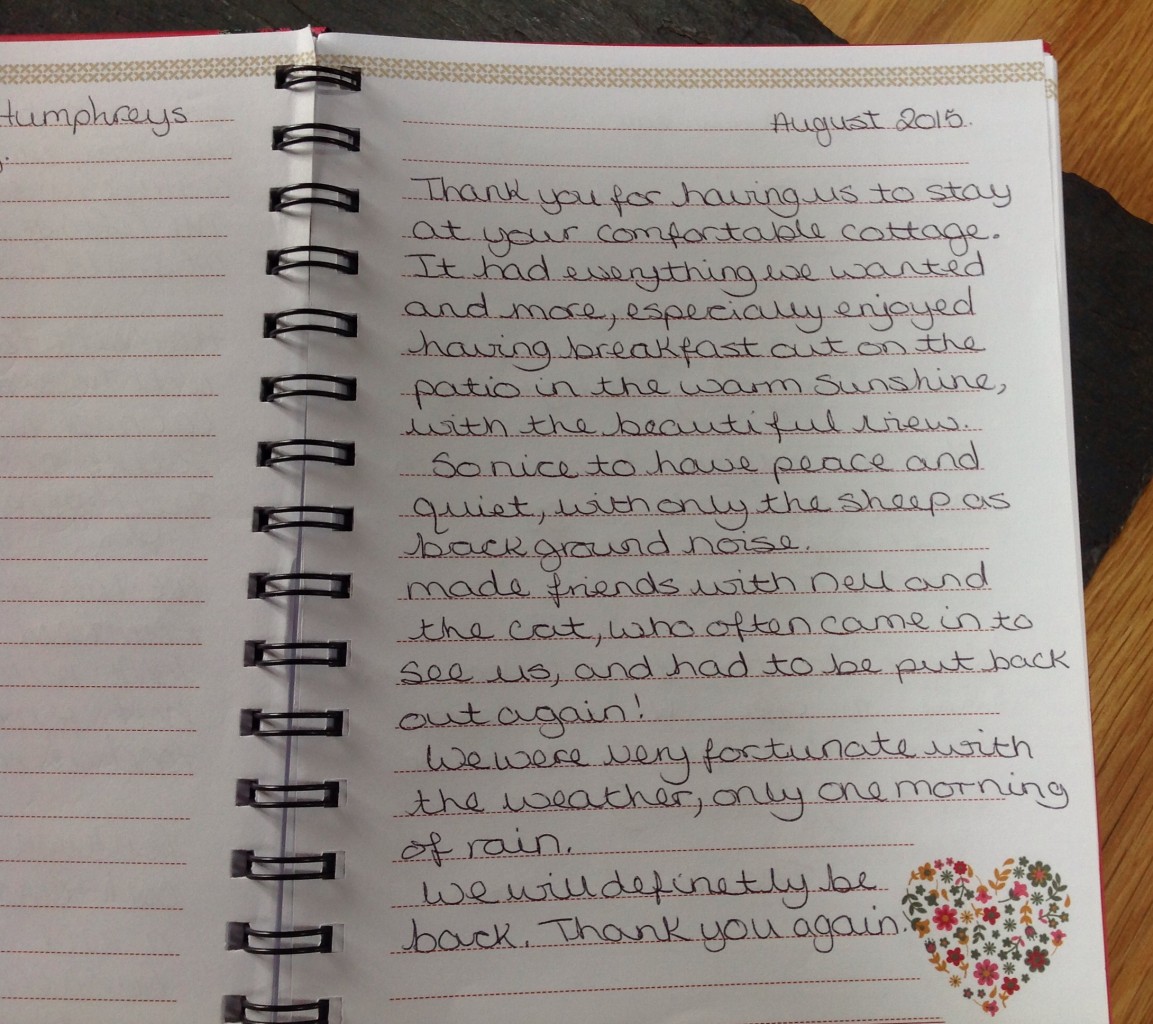 Humphreys
August 2015.
Thank you for having us to stay
at your comfortable cottage.
It had everything we wanted
and more, especially enjoyed
having breakfast out on the
patio in the warm sunshine,
with the beautiful view.
So nice to have peace and
quiet, with only the sheep as
back ground noise.
made friends with nell and
the cat, who often came in to
see us, and had to be put back
out again!
We were very fortunate with
the weather, only one morning
of rain.
We will definetly be
back. Thank you again.